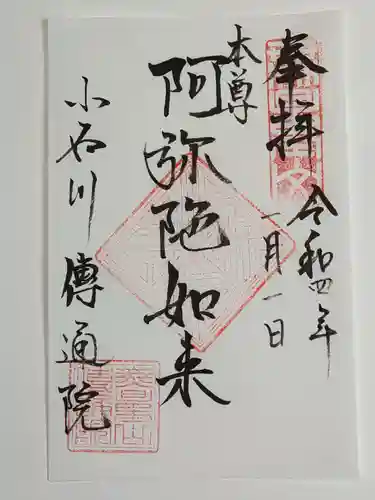 奉拝
令和四年
一月一日
本尊
阿弥陀如来
小石川傳通院